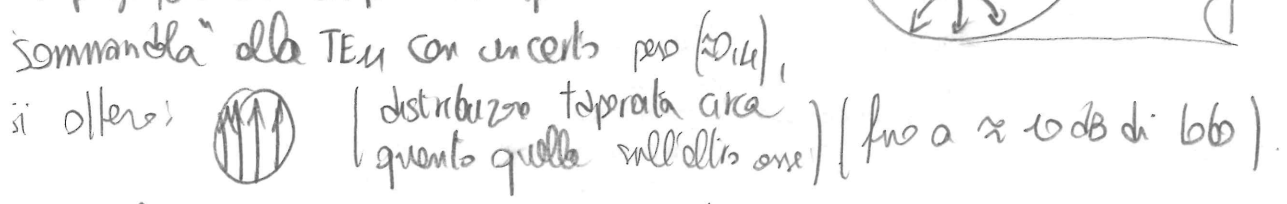 sommandola" alla TEM con un certo peso (≈0,4),
si ottiene: (distribuzione taperata circa
quanto quella sull'altro asse) (fino a ≈ 10 dB di lobo).